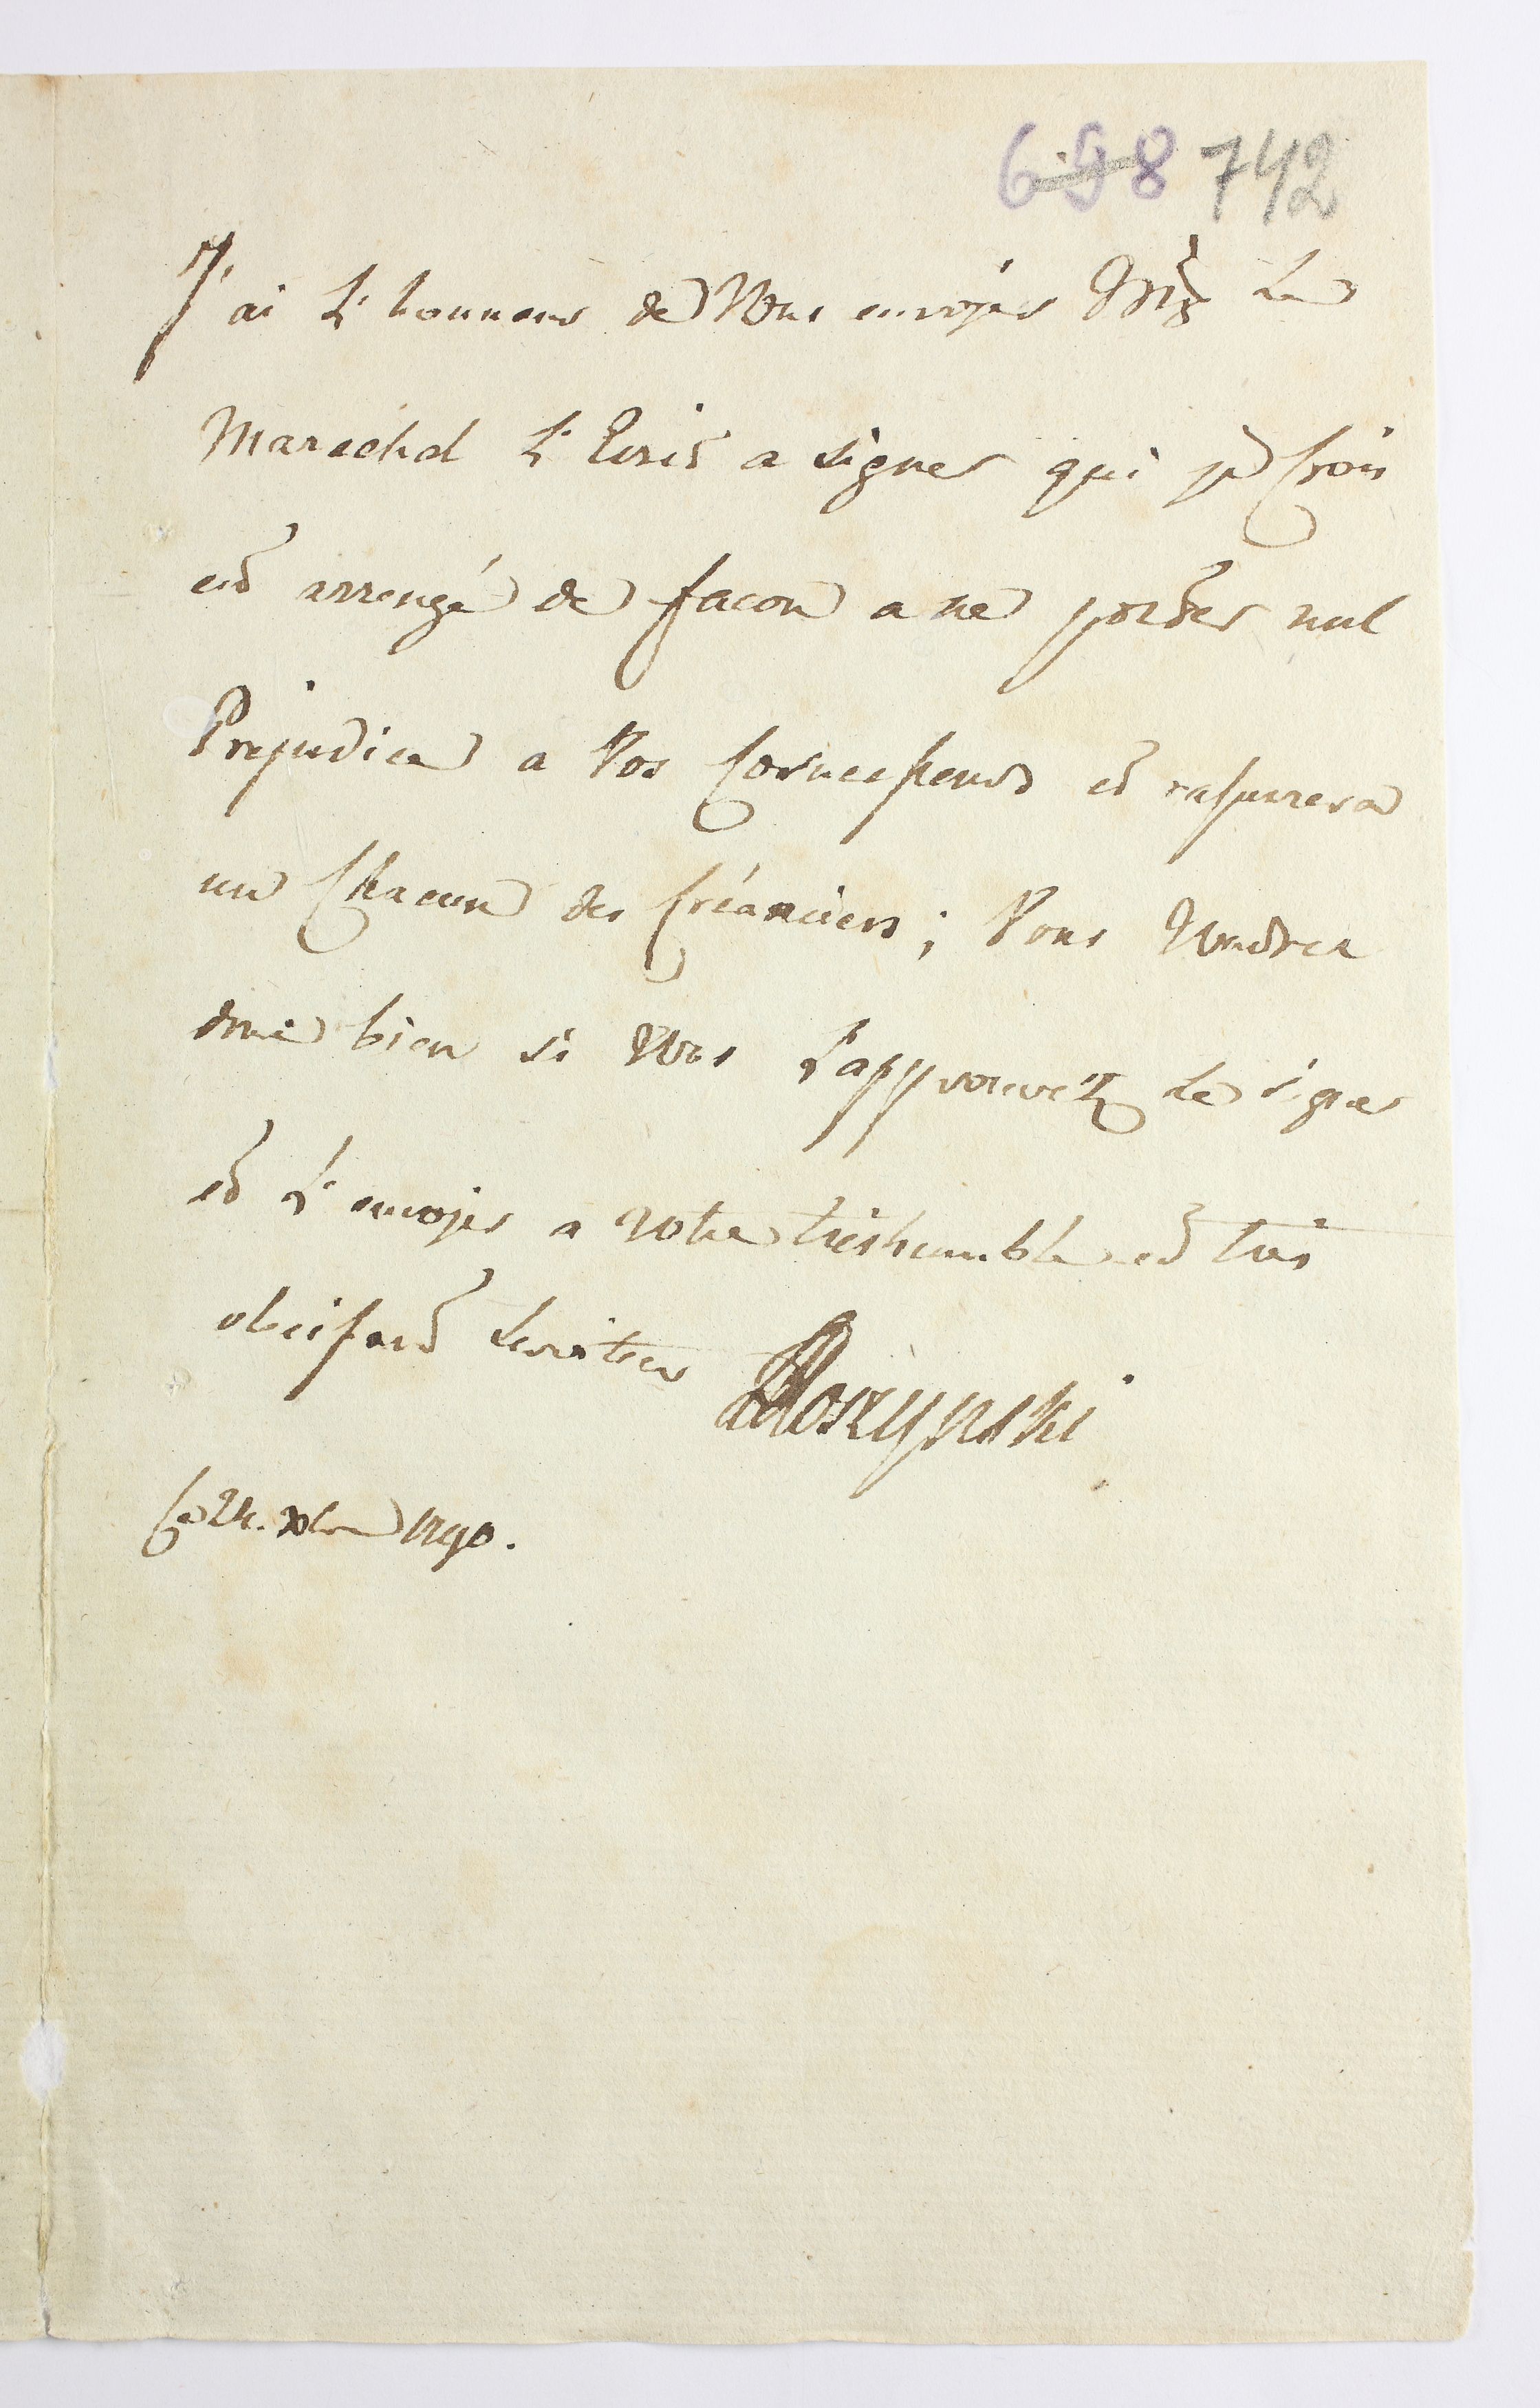 698 742
J'ai L'honneur de Vous envoyer Mgr Le
Marechal L'Ecrit a signer qui je Crois
est arrengé de facon a ne porter nul
Prejudice a Vos Correspend et rassurera
un Chacun des Créanciers; Vous Voudres
donc bien si Vous L'approuvez Le signer
et L'envoyer a Votre treshumble et tres
obeissant Serviteur
AMoszynski
Ce 24. Xbre 1790.